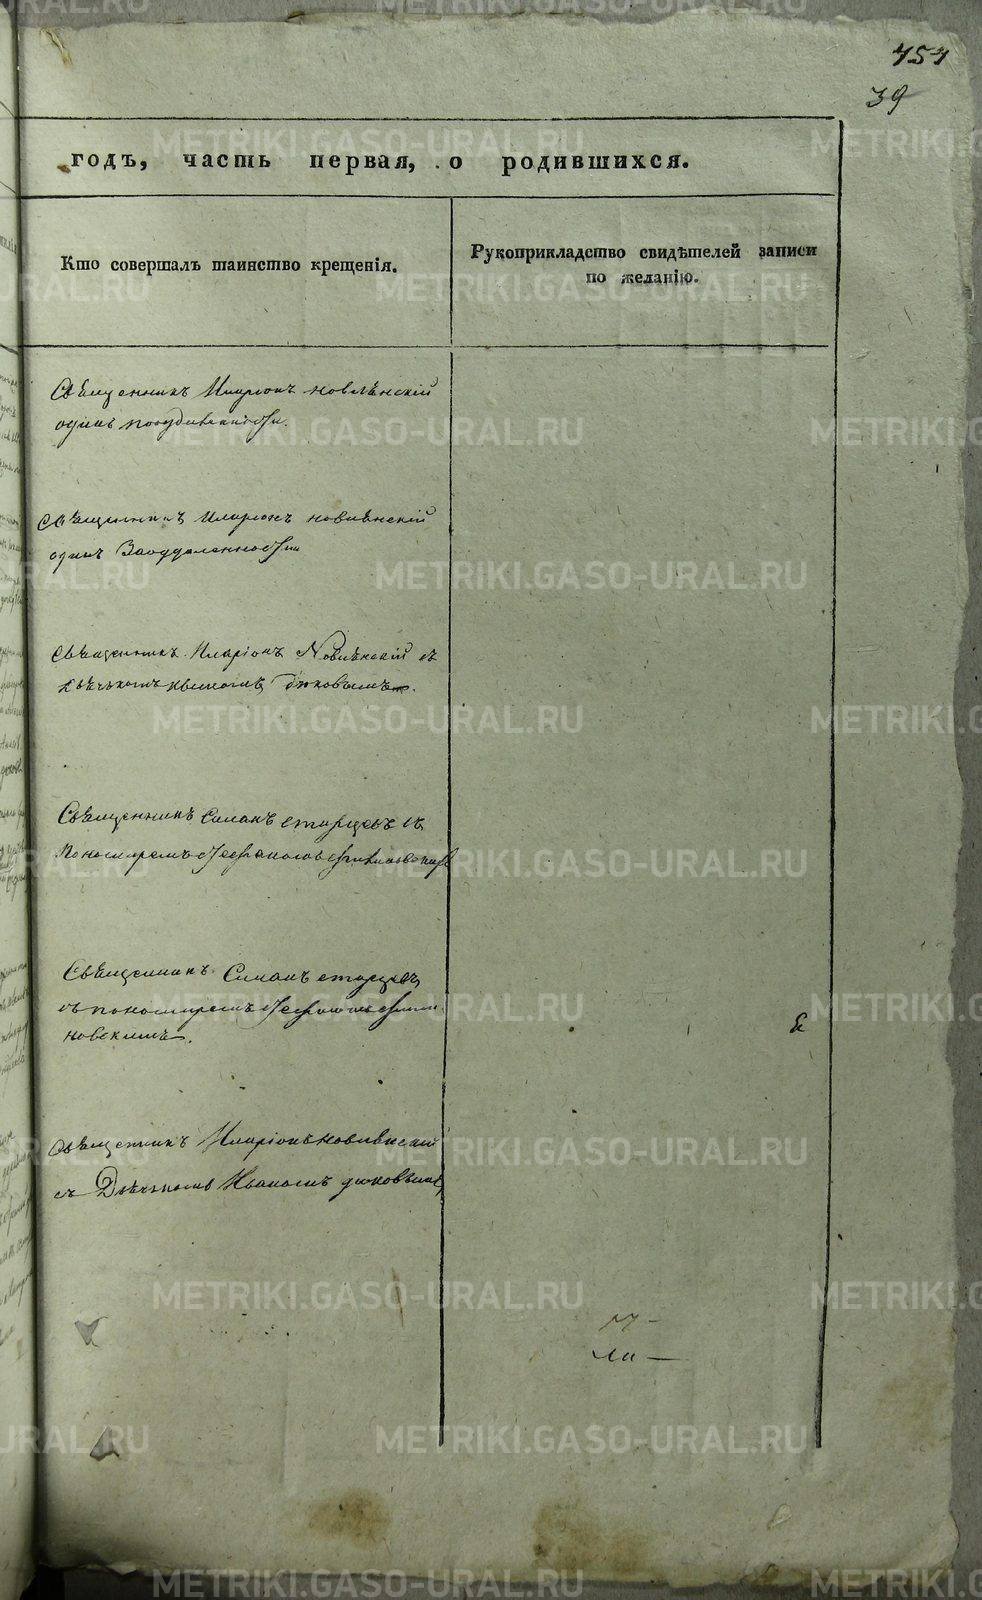 757
39
годъ, часть первая, о родившихся.
Кто совершалъ таинство крещенія.
Рукоприкладство свидѣтелей записи
по желанію.
Священникъ Иларіонъ Новлѣнскій
одинъ
Священникъ Иларіонъ Новлѣнскій
одинъ Заотдаленностію
Священникъ Иларіонъ Новлѣнскій съ
дьячькомъ Иваномъ
Священникъ Симонъ Старцевъ съ
Пономаремъ
Священникъ Симонъ Старцевъ
съ пономаремъ
новскимъ.
Священникъ Иларіонъ Новлѣнскій
съ Дьячькомъ Иваномъ
METRIKI.GASO-URAL.RU